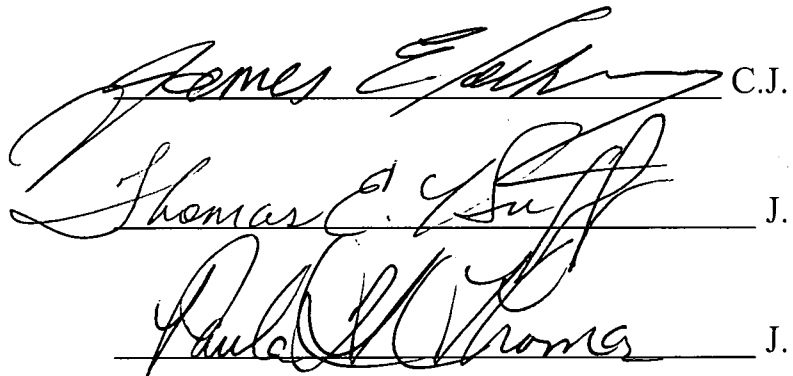 James E. C.J.
Thomas E. Huff J.
Paula H. Thomas J.